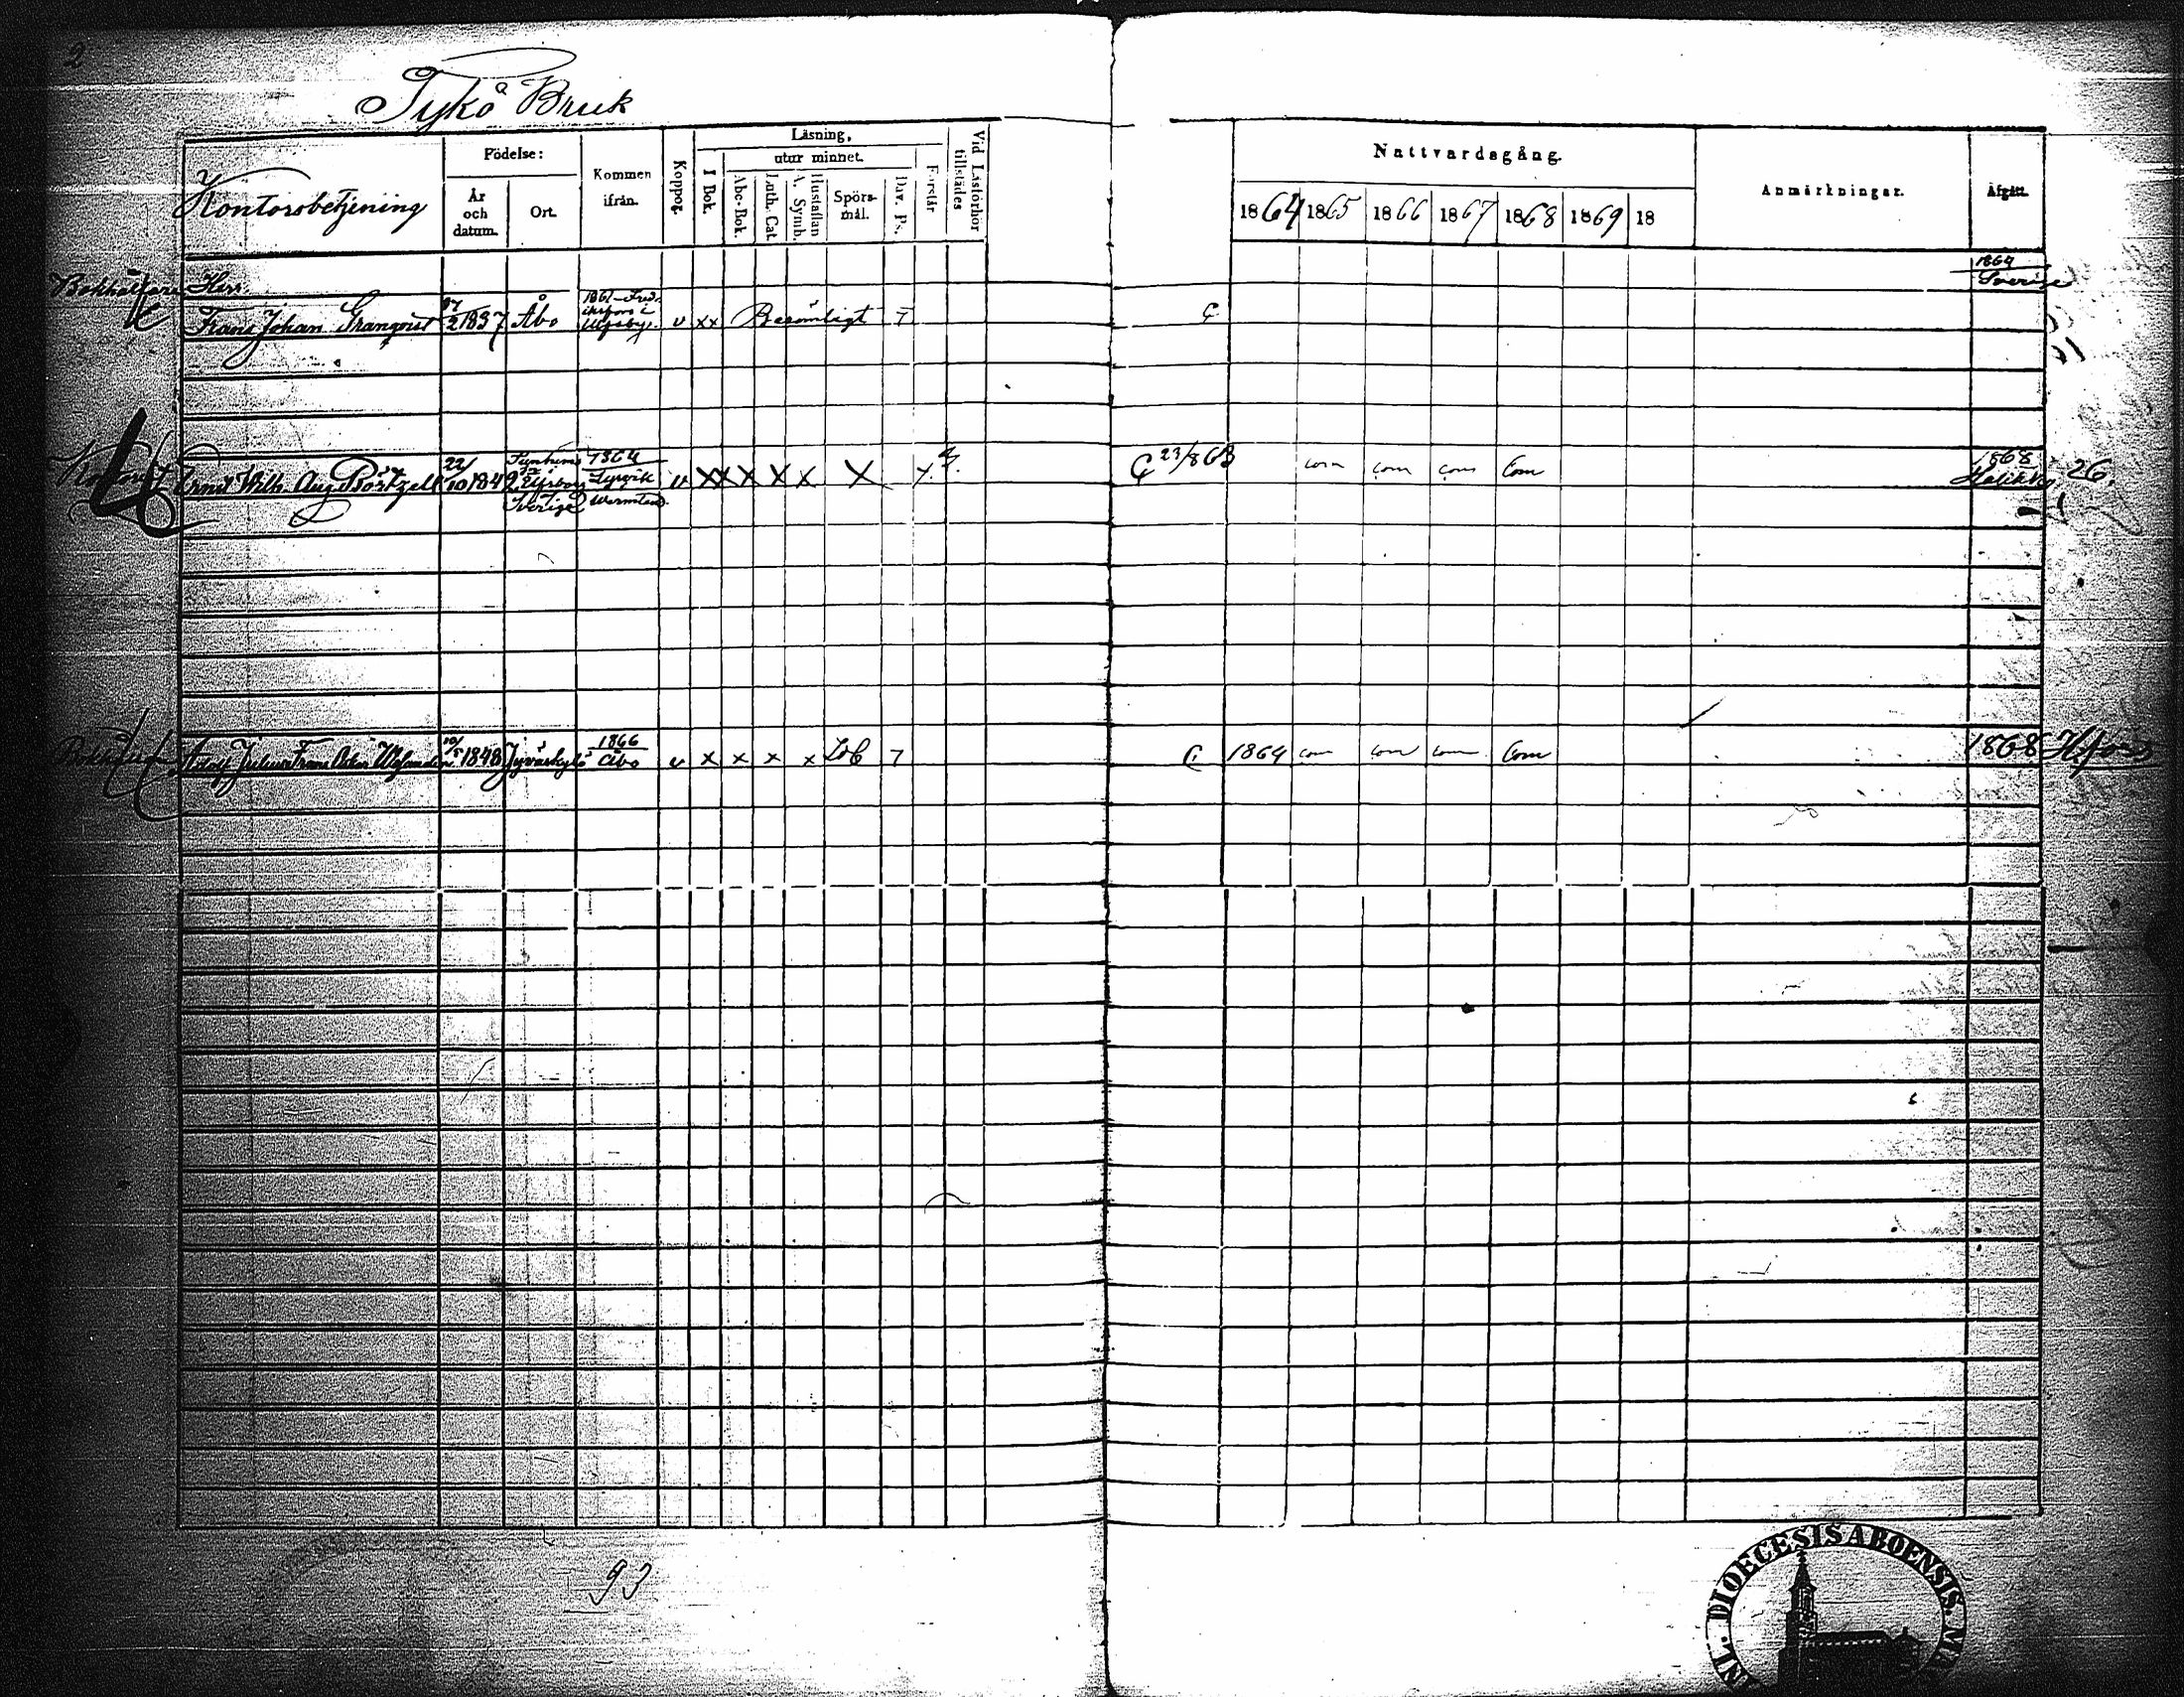 2
Tykö Bruk
Kontorsbetjening
Födelse:
År och datum.
Ort.
Kommen ifrån.
Koppor.
Läsning,
I Bok.
utur minnet.
Abc-Bok.
Luth. Cat.
A. Symb.
Hustaflan
Spörsmål.
Dav. Ps.
Förstår
Vid Läsförhör tillstädes
Nattvardsgång.
1864 1865 1866 1867 1868 1869 18
Anmärkningar.
Afgått.
Bokhållare Herr
1864
Sverige
Frans Johan Granqvist 2 1837 Åbo 1861 v xx Berömligt
Ernst Wilh. Aug. Pörtzell 22/10 1849 Elfsborg Sverige 1864 Wermland v x x x x x x
C 23/8 63 com com com Com 1868 26.
Adolf Julius Frans Oskar 1848 Jyväskylä 1866 Åbo v x x x x
C 1864 com com com Com 1868 H:fors
93
DIOECESIS ABOENSIS.